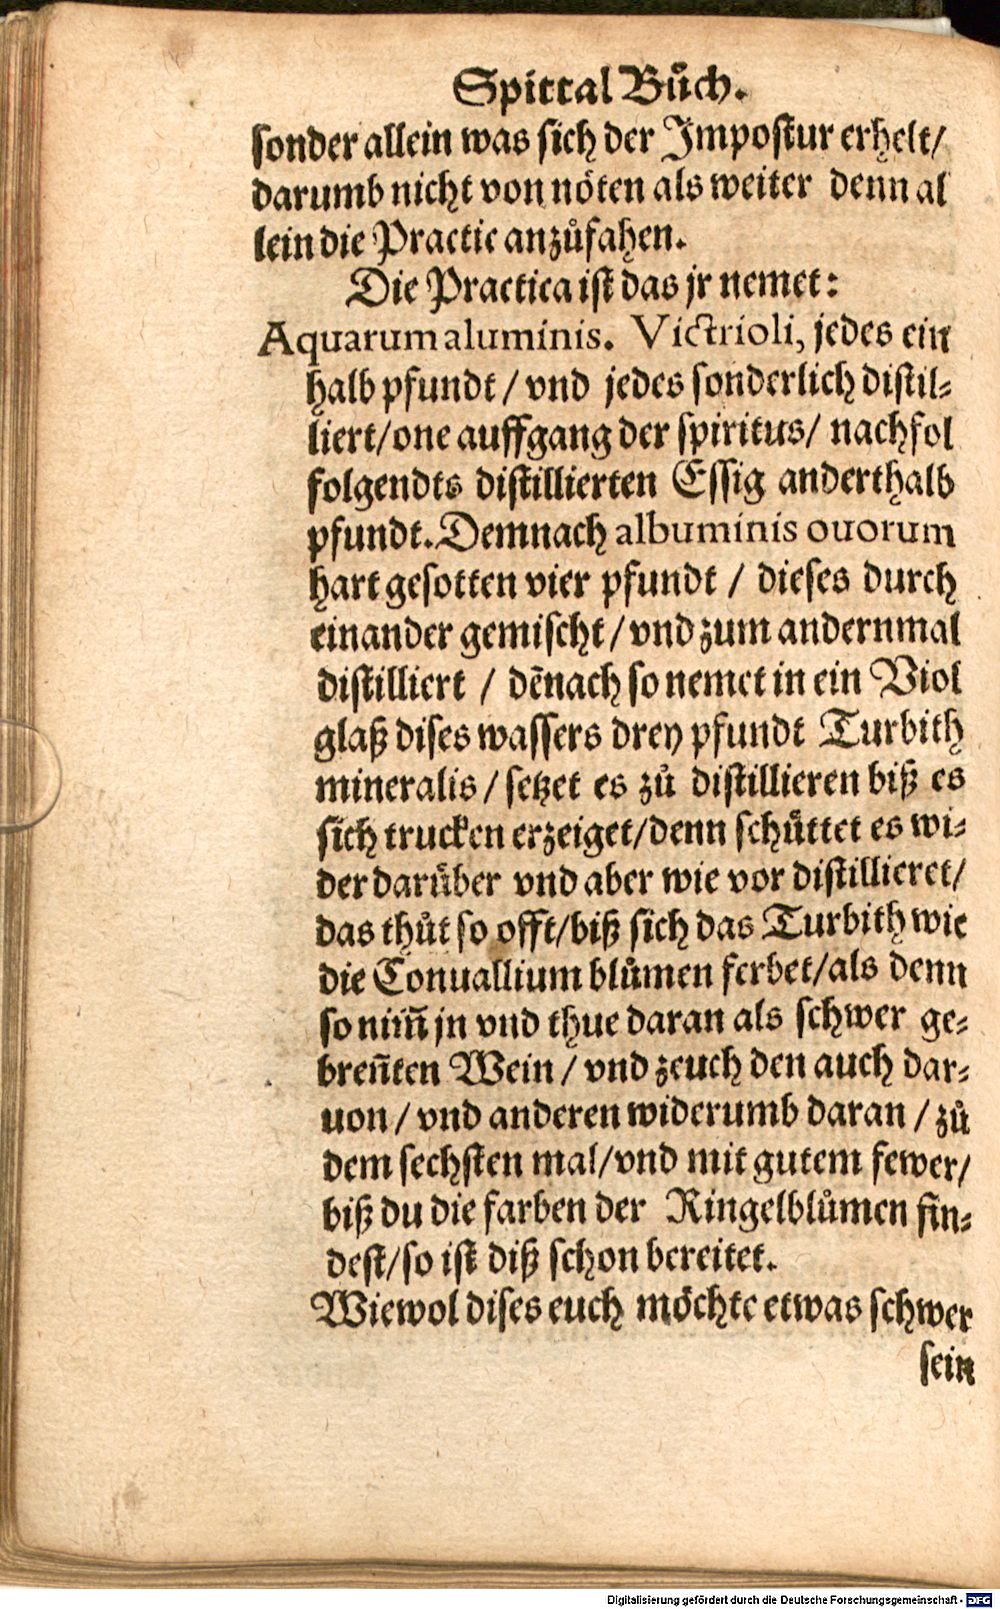 Spittal Bůch.
sonder allein was sich der Impostur erhelt/
darumb nicht von nöten als weiter denn al
lein die Practic anzůfahen.
Die Practica ist das jr nemet:
Aquarum aluminis. Victrioli, jedes ein
halb pfundt / vnd jedes sonderlich distil-
liert/one auffgang der spiritus/ nachfol
folgendts distillierten Essig anderthalb
pfundt. Demnach albuminis ouorum
hart gesotten vier pfundt / dieses durch
einander gemischt/vnd zum andernmal
distilliert / dēnach so nemet in ein Viol
glaß dises wassers drey pfundt Turbith
mineralis / setzet es zů distillieren biß es
sich trucken erzeiget/denn schüttet es wi-
der darüber vnd aber wie vor distillieret/
das thůt so offt/biß sich das Turbith wie
die Conuallium blůmen ferbet/als denn
so nim̄ jn vnd thue daran als schwer ge-
breñten Wein / vnd zeuch den auch dar-
uon / vnd anderen widerumb daran / zů
dem sechsten mal/vnd mit gutem fewer/
biß du die farben der Ringelblůmen fin-
dest/so ist diß schon bereitet.
Wiewol dises euch möchte etwas schwer
sein
Digitalisierung gefördert durch die Deutsche Forschungsgemeinschaft - DFG